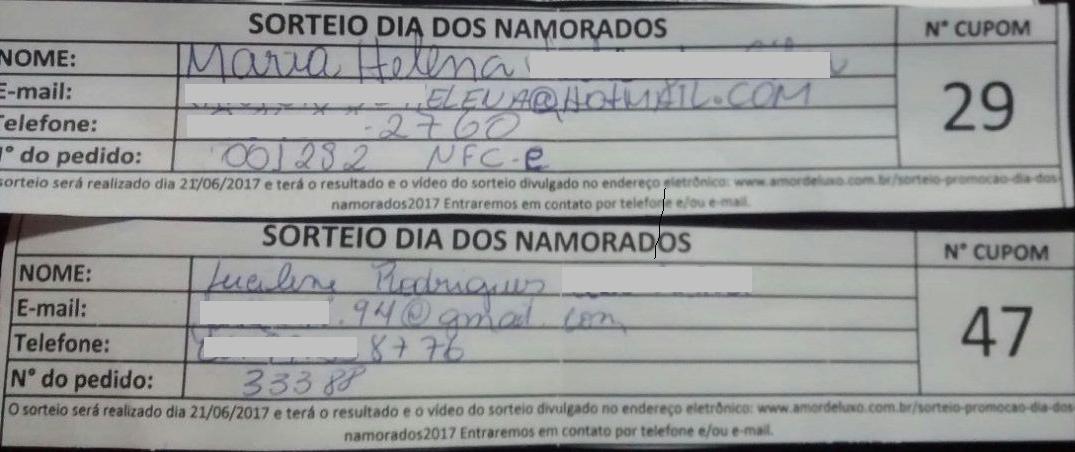 SORTEIO DIA DOS NAMORADOS
Nº CUPOM
NOME: Maria Helena
E-mail: ELENA@HOTMAIL.COM
Telefone: -2760
Nº do pedido: 001282 NFC-e
29
sorteio será realizado dia 21/06/2017 e terá o resultado e o vídeo do sorteio divulgado no endereço eletrônico: www.amordeluxo.com.br/sorteio-promocao-dia-dos-
namorados2017 Entraremos em contato por telefone e/ou e-mail.
SORTEIO DIA DOS NAMORADOS
N° CUPOM
NOME: Rodrigues
E-mail: .94@gmail.com
Telefone: 8776
N° do pedido: 33388
47
O sorteio será realizado dia 21/06/2017 e terá o resultado e o vídeo do sorteio divulgado no endereço eletrônico: www.amordeluxo.com.br/sorteio-promocao-dia-dos-
namorados2017 Entraremos em contato por telefone e/ou e-mail.